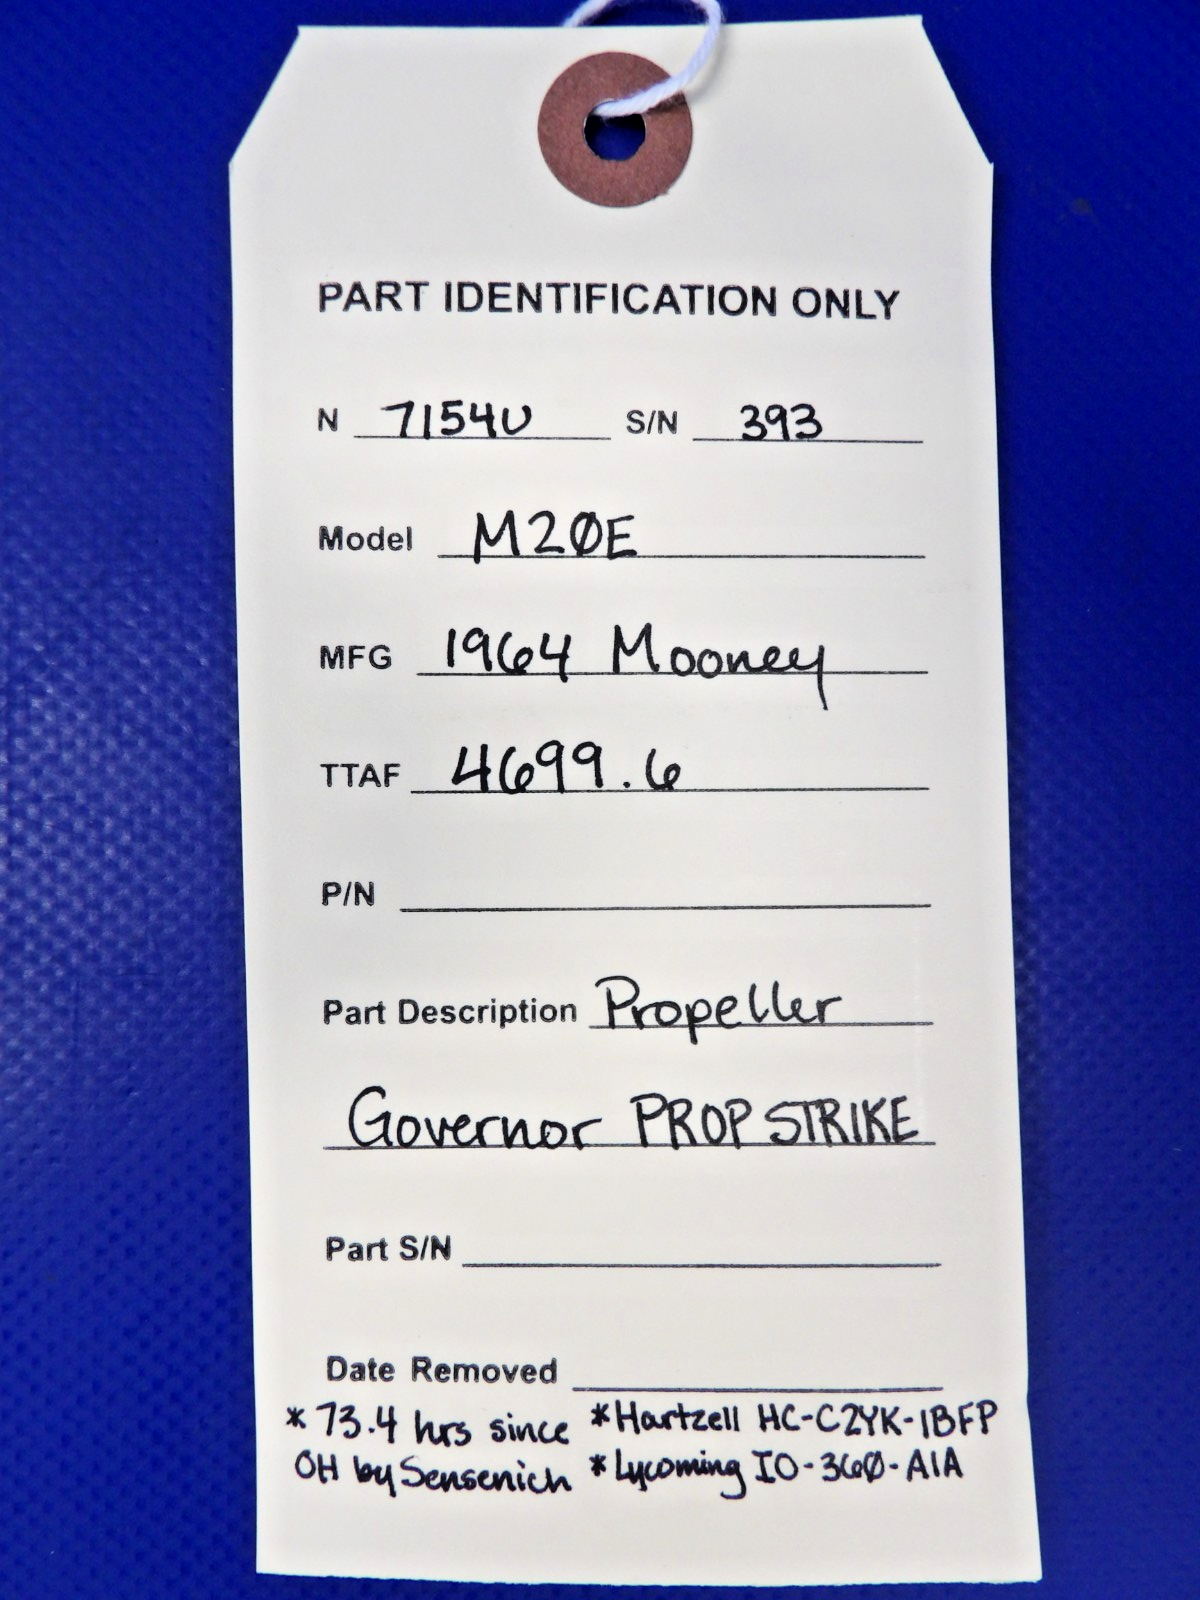 PART IDENTIFICATION ONLY
N 7154U S/N 393
Model M20E
MFG 1964 Mooney
TTAF 4699.6
P/N
Part Description Propeller
Governor PROP STRIKE
Part S/N
Date Removed
* 73.4 hrs since * Hartzell HC-C2YK-1BFP
OH by Sensenich * Lycoming IO-360-A1A